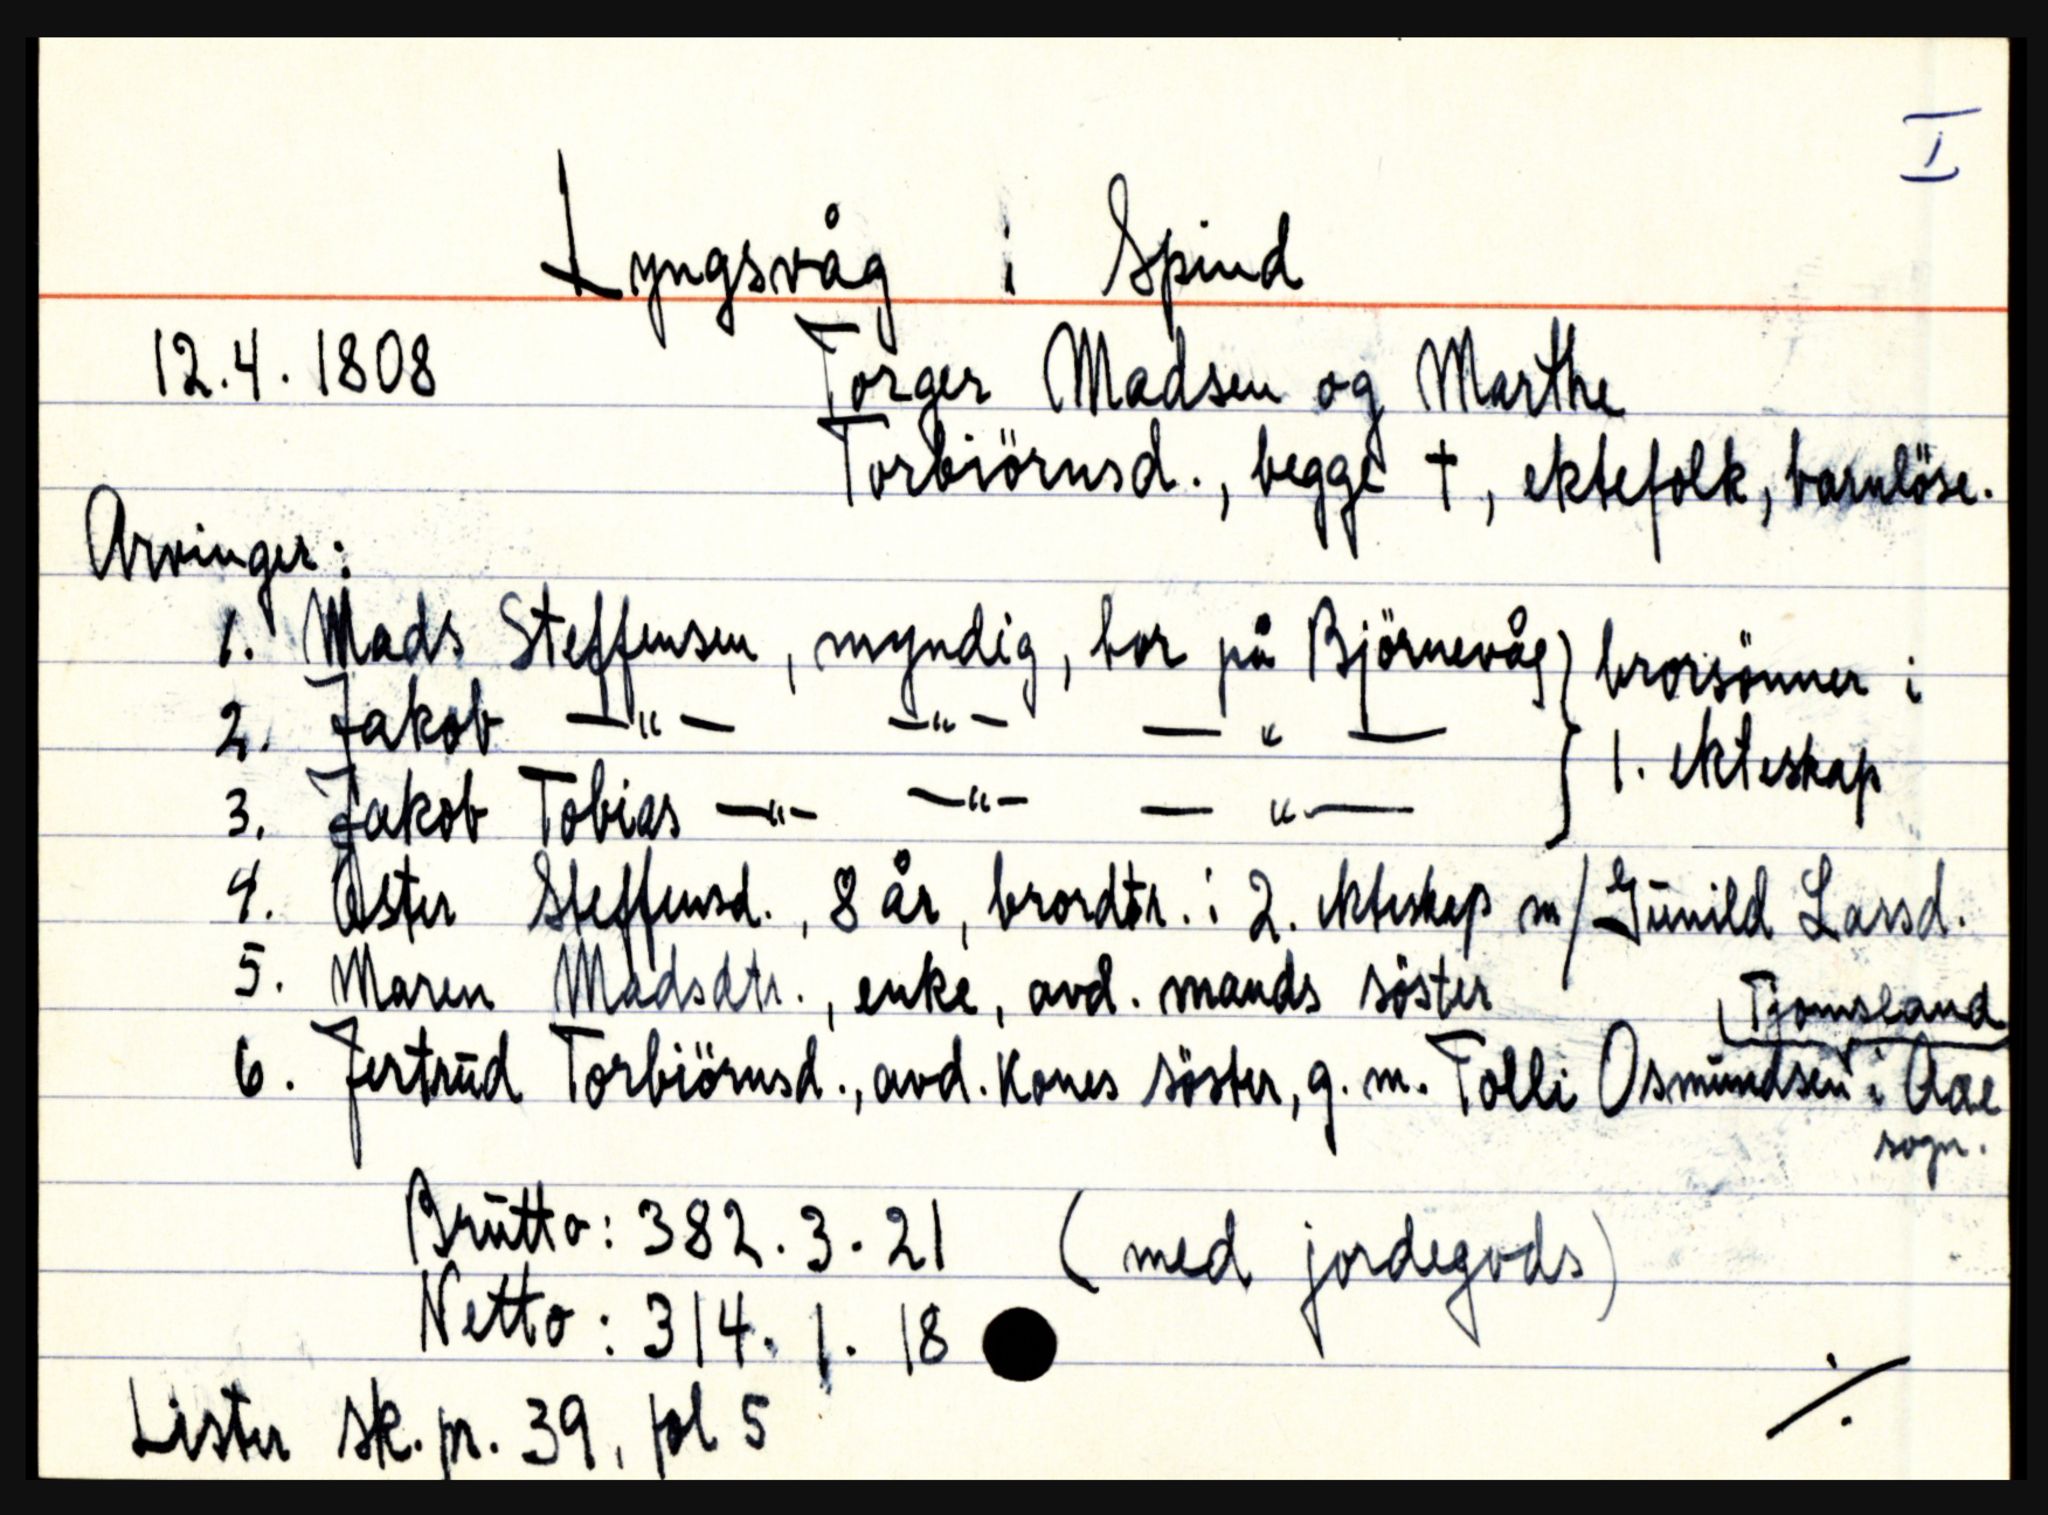 I
Lyngsvåg i Spind
12.4.1808 Torger Madsen og Marthe
Torbiörnsd., begge †, ektefolk, barnlöse.
Arvinger:
1. Mads Steffensen, myndig, bor på Björnevåg } brorsönner i
2. Jakob —"— —"— — " —
1. ekteskap
3. Jakob Tobias —"— —"— — " —
4. Oster Steffensd., 8 år, brordtr. i 2. ekteskap m/ Gunild Larsd.
5. Maren Madsdtr., enke, avd. mands söster
Tjomsland
6. Jertrud Torbiörnsd., avd. Kones söster, g. m. Tolli Osmundsen i Aae
sogn.
Brutto: 382.3.21 (med jordegods)
Netto: 314.1.18
Lister sk.pr. 39, fol 5 ./.